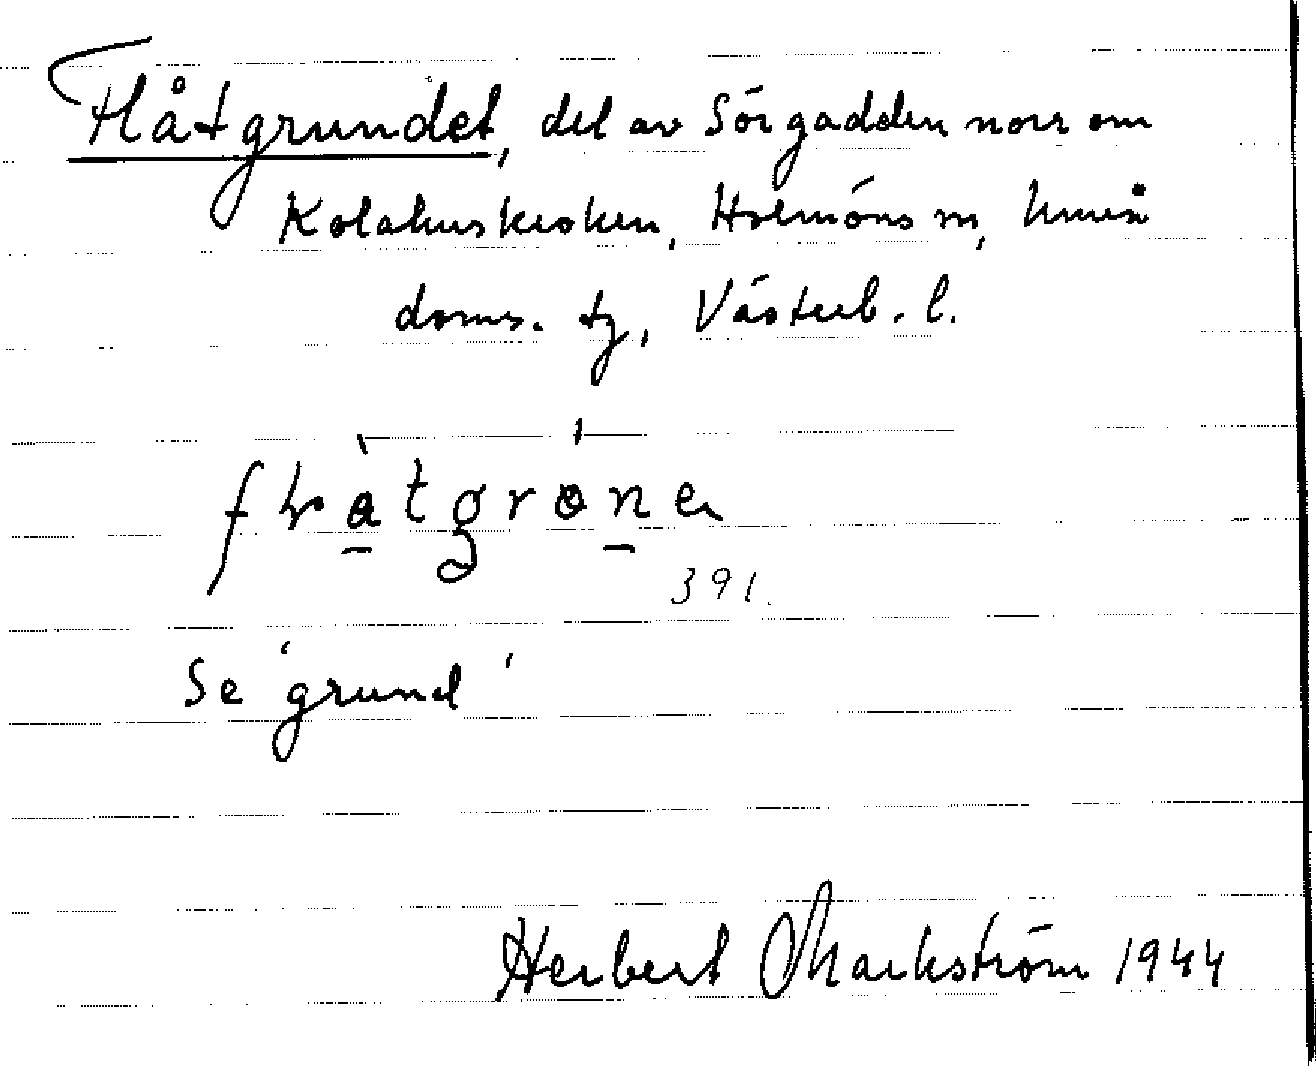 Flåtgrundet, del av Sörgadden norr om
Kolahuskroken, Holmöns sn, Umeå
doms. tg, Västerb. l.
flåtgrøne
391.
Se 'grund'
Herbert Markström 1944